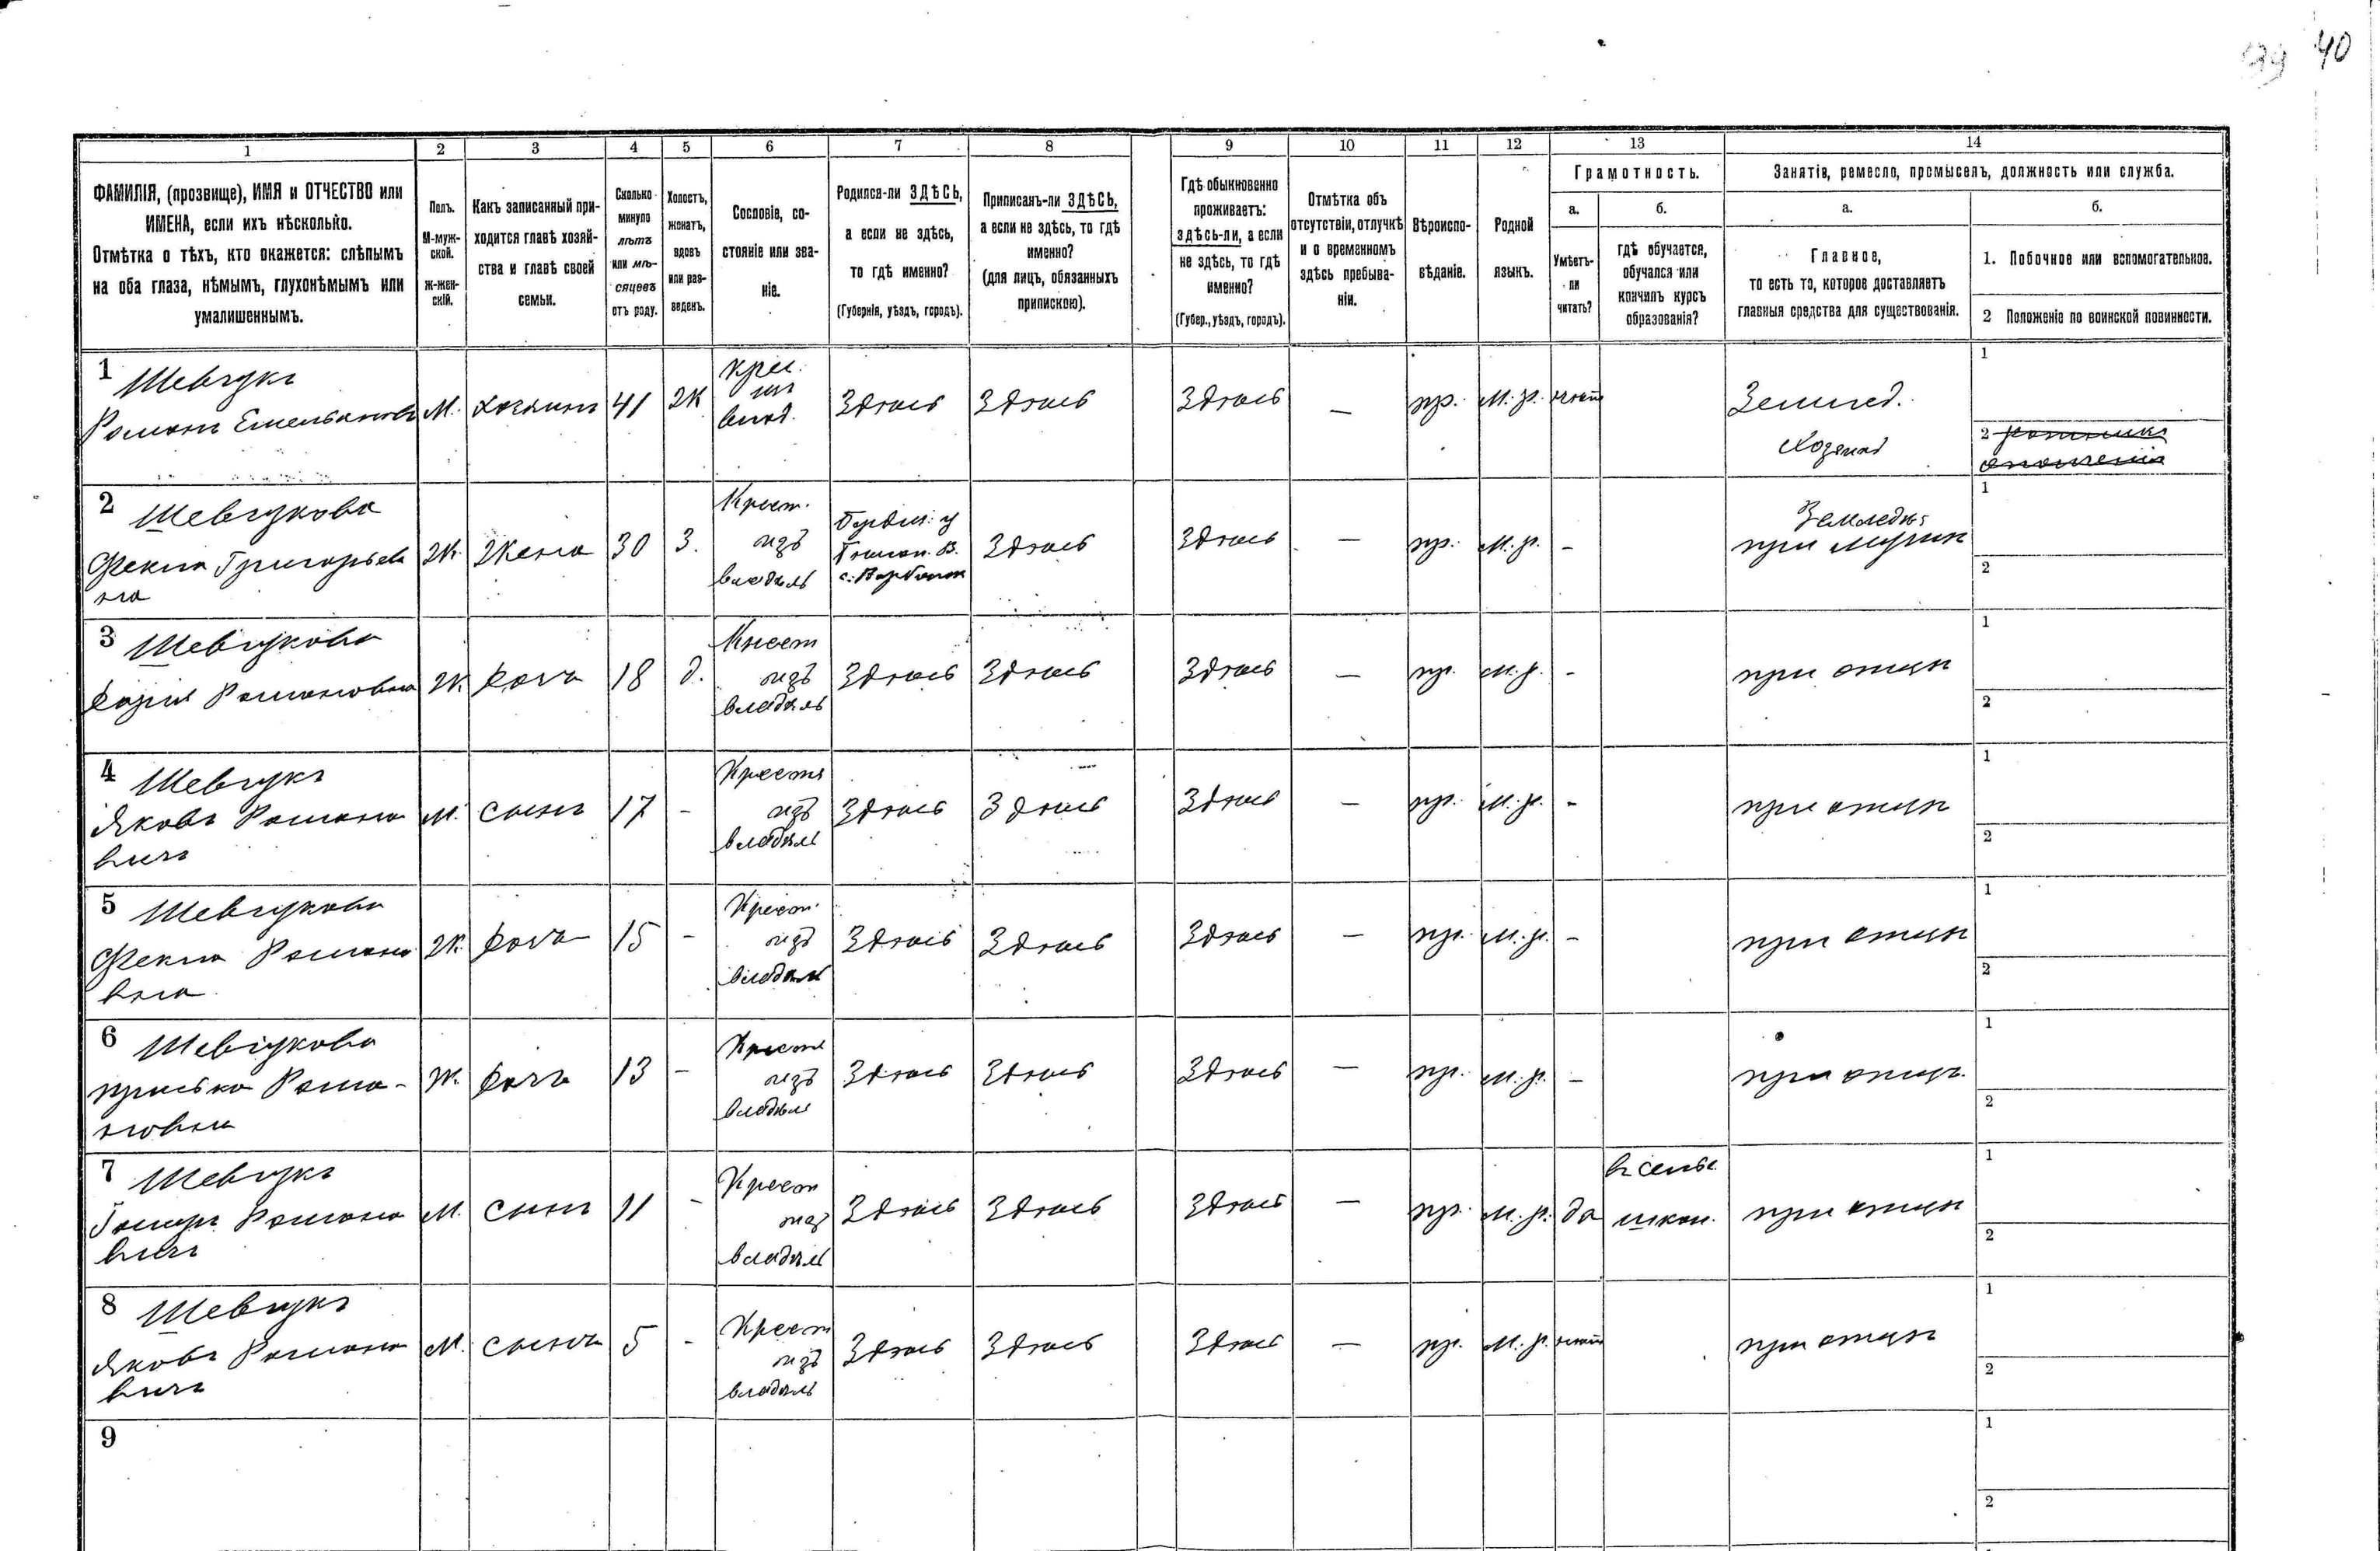 40
1 2 3 4 5 6 7 8 9 10 11 12 13 14
ФАМИЛІЯ, (прозвище), ИМЯ и ОТЧЕСТВО или
ИМЕНА, если ихъ нѣсколько.
Отмѣтка о тѣхъ, кто окажется: слѣпымъ
на оба глаза, нѣмымъ, глухонѣмымъ или
умалишеннымъ.
Полъ.
М-муж-
ской.
ж-жен-
скій.
Какъ записанный при-
ходится главѣ хозяй-
ства и главѣ своей
семьи.
Сколько
минуло
лѣтъ
или мѣ-
сяцевъ
отъ роду.
Холостъ,
женатъ,
вдовъ
или раз-
веденъ.
Сословіе, со-
стояніе или зва-
ніе.
Родился-ли ЗДѢСЬ,
а если не здѣсь,
то гдѣ именно?
(Губернія, уѣздъ, городъ).
Приписанъ-ли ЗДѢСЬ,
а если не здѣсь, то гдѣ
именно?
(для лицъ, обязанныхъ
припискою).
Гдѣ обыкновенно
проживаетъ:
здѣсь-ли, а если
не здѣсь, то гдѣ
именно?
(Губер., уѣздъ, городъ).
Отмѣтка объ
отсутствіи, отлучкѣ
и о временномъ
здѣсь пребыва-
ніи.
Вѣроиспо-
вѣданіе.
Родной
языкъ.
Грамотность.
а.
Умѣетъ-
ли
читать?
б.
гдѣ обучается,
обучался или
кончилъ курсъ
образованія?
Занятіе, ремесло, промыселъ, должность или служба.
а.
Главное,
то есть то, которое доставляетъ
главныя средства для существованія.
б.
1. Побочное или вспомогательное.
2 Положеніе по воинской повинности.
1 Шевчукъ
Романъ Емельяновъ
М. хозяинъ 41 Ж
Крес.
изъ
влад.
Здѣсь Здѣсь Здѣсь — пр. м.р. нѣтъ
Землед.
Хозяинъ
1
2 ратникъ
ополченія
2 Шевчукова
Фекла Григорьев
на
Ж. Жена 30 З.
Крест.
изъ
владѣль
Здѣсь Здѣсь — пр. м.р. -
Земледѣ:
при мужѣ
1
2
3 Шевчукова
Дарія Романовна
Ж. дочь 18 д.
Крест
изъ
владѣль
Здѣсь Здѣсь Здѣсь — пр. м.р. - при отцѣ
1
2
4 Шевчукъ
Яковъ Романо
вичъ
М. сынъ 17 -
Крестя
изъ
владѣль
Здѣсь Здѣсь Здѣсь — пр. м.р. - при отцѣ
1
2
5 Шевчукова
Фекла Романо
вна
Ж. дочь 15 -
Крест.
изъ
владѣль
Здѣсь Здѣсь Здѣсь — пр. м.р. - при отцѣ
1
2
6 Шевчукова
Приська Рома-
новна
Ж. дочь 13 -
Крест
изъ
владѣль
Здѣсь Здѣсь Здѣсь — пр. м.р. - при отцѣ
1
2
7 Шевчукъ
Романо
вичъ
М. сынъ 11 -
Крест
изъ
владѣль
Здѣсь Здѣсь Здѣсь — пр. м.р. да
въ сельс.
школ.
при отцѣ
1
2
8 Шевчукъ
Яковъ Романо
вичъ
М. сынъ 5 -
Крест
изъ
владѣль
Здѣсь Здѣсь Здѣсь — пр. м.р. нѣтъ при отцѣ
1
2
9
1
2